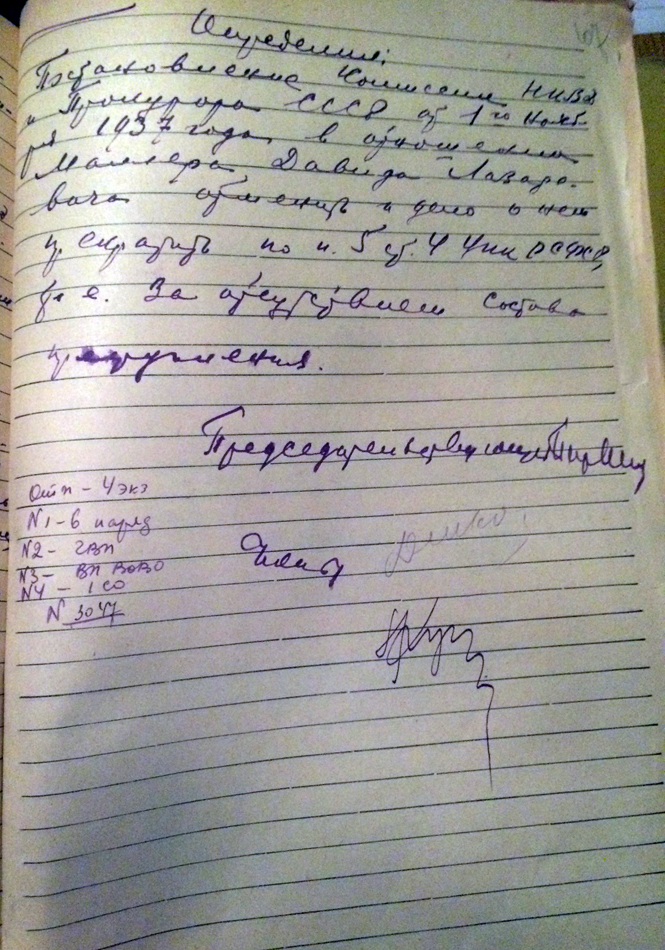 Определил:
Постановление Комиссии НКВД
и Прокурора СССР от 1го нояб-
ря 1937 года в отношении
Давида Лазаре-
вича отменить и дело о нем
прекратить по п. 5 ст. 4 УПК РСФСР,
т. е. за отсутствием состава
преступления.
Председательствующий
Члены
Отп – 4 экз
N1 – в наряд
N2 – ГВП
N3 – ВП ВоВО
N4 – 1 СО
N 3047